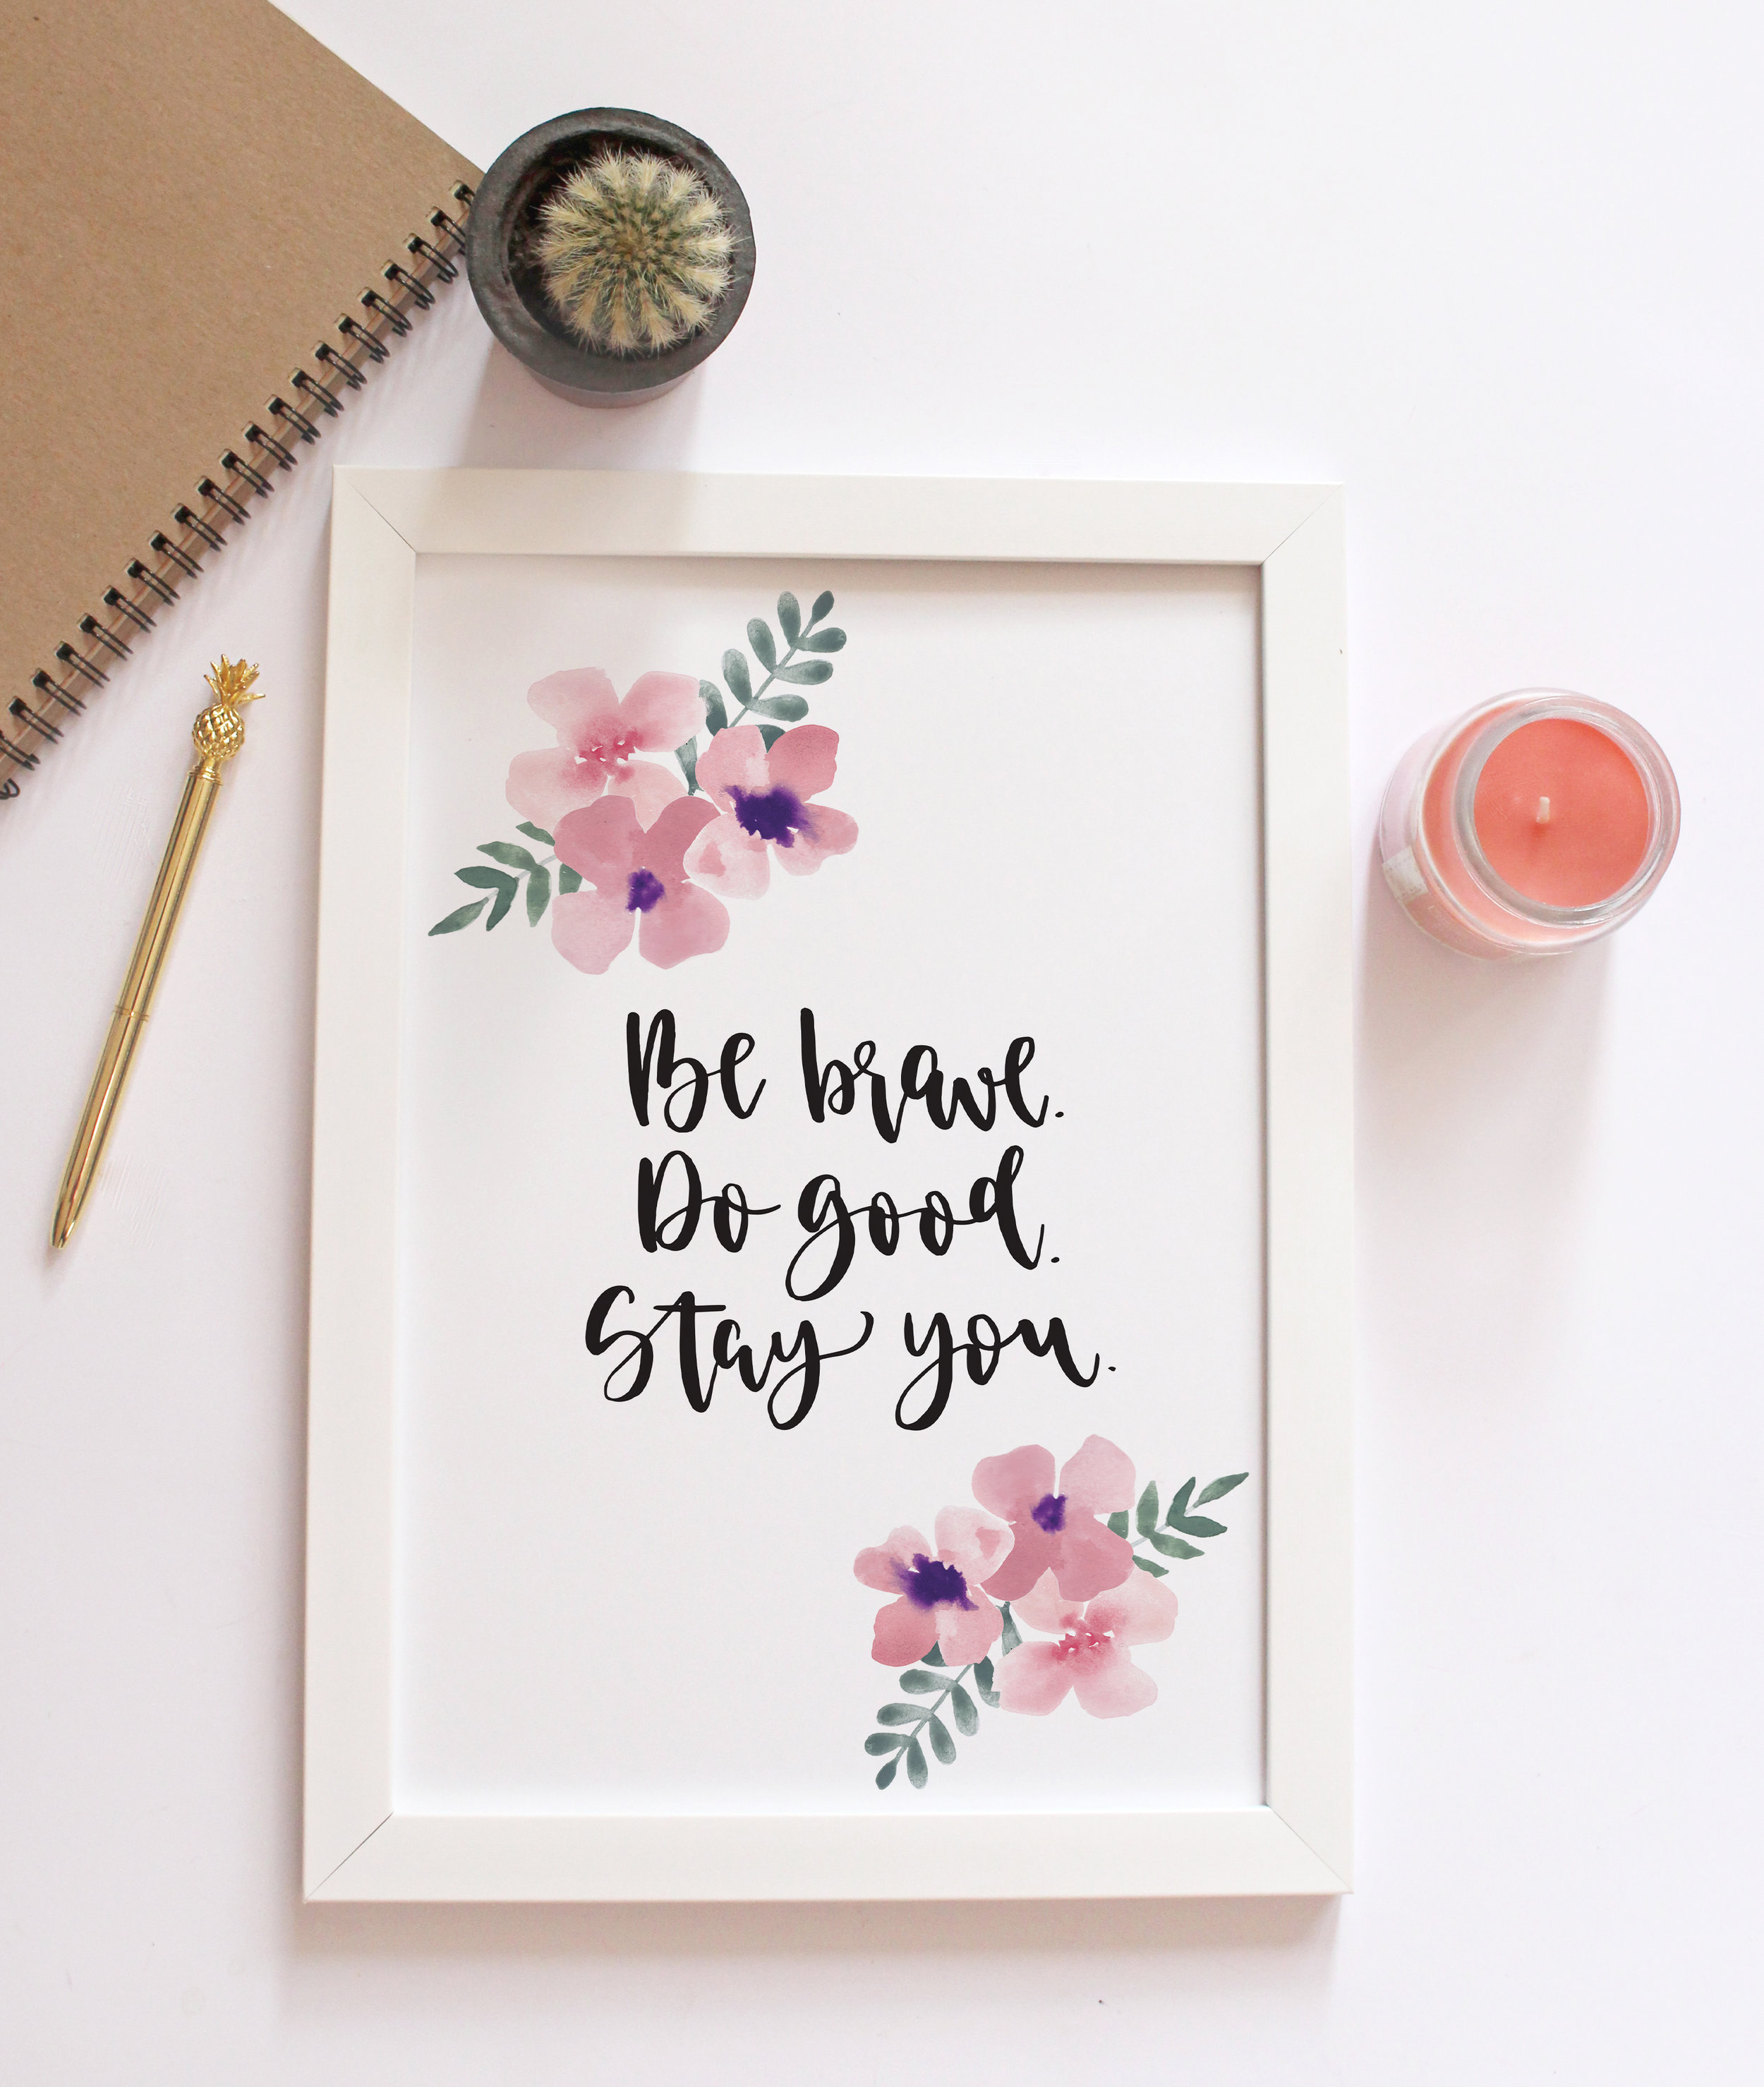 Be brave.
Do good.
Stay you.